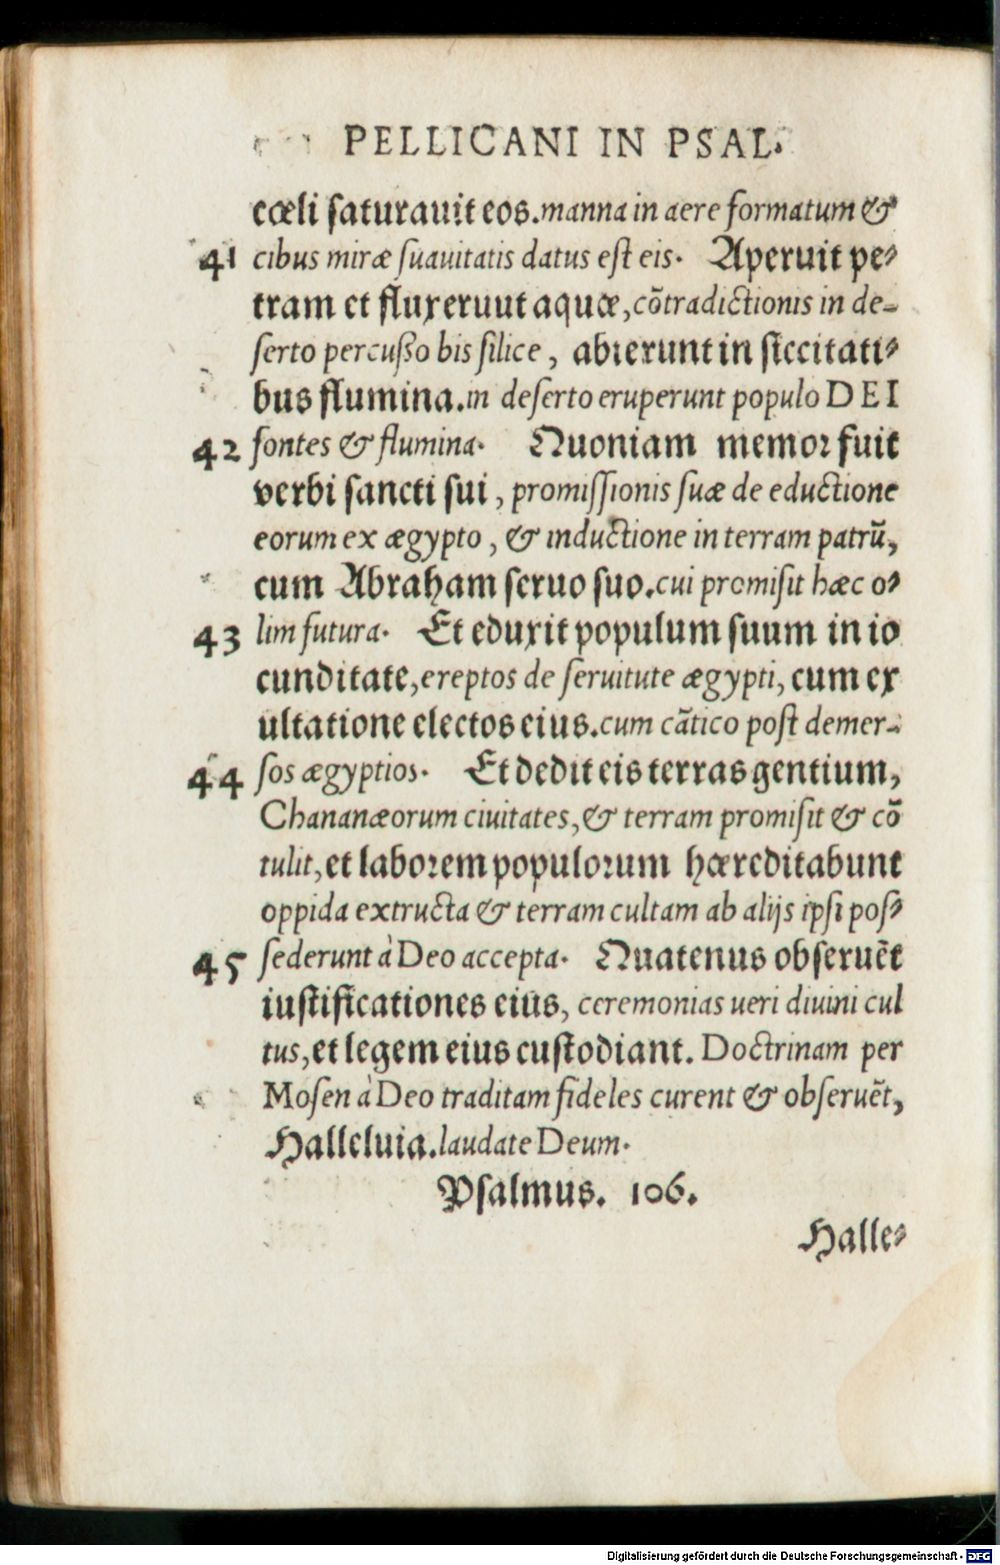 PELLICANI IN PSAL.
cœli saturauit eos. manna in aere formatum &
41 cibus miræ suauitatis datus est eis. Aperuit pe⸗
tram et fluxerunt aquæ, cõtradictionis in de-
serto percusso bis silice, abierunt in siccitati⸗
bus flumina. in deserto eruperunt populo DEI
42 fontes & flumina. Quoniam memor fuit
verbi sancti sui, promissionis suæ de eductione
eorum ex ægypto, & inductione in terram patrũ,
cum Abraham seruo suo. cui promisit hæc o⸗
43 lim futura. Et eduxit populum suum in io
cunditate, ereptos de seruitute ægypti, cum ex
ultatione electos eius. cum cãtico post demer-
44 sos ægyptios. Et dedit eis terras gentium,
Chananæorum ciuitates, & terram promisit & cõ
tulit, et laborem populorum hæreditabunt
oppida extructa & terram cultam ab alijs ipsi pos⸗
45 sederunt à Deo accepta. Quatenus obseruẽt
iustificationes eius, ceremonias ueri diuini cul
tus, et legem eius custodiant. Doctrinam per
Mosen à Deo traditam fideles curent & obseruẽt,
Halleluia. laudate Deum.
Psalmus. 106.
Halle⸗
Digitalisierung gefördert durch die Deutsche Forschungsgemeinschaft - DFG